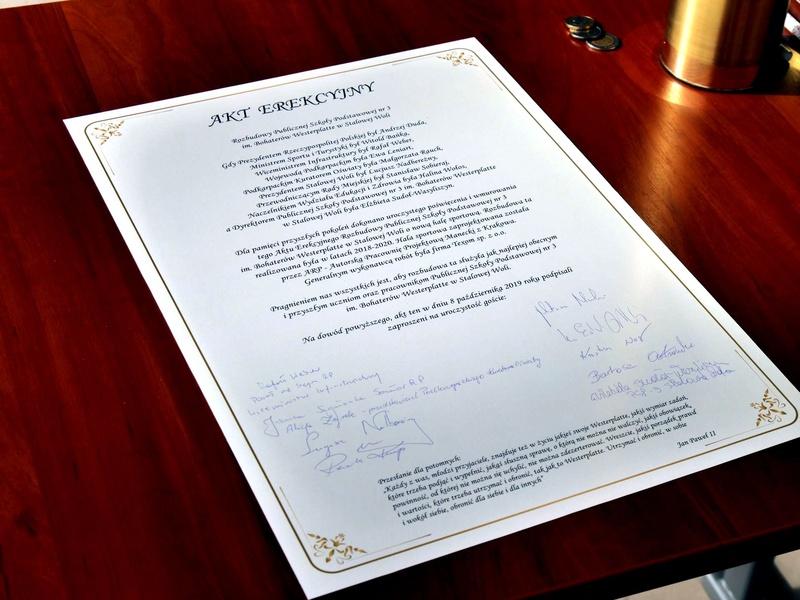 AKT EREKCYJNY
Rozbudowy Publicznej Szkoły Podstawowej nr 3
im. Bohaterów Westerplatte w Stalowej Woli
Gdy Prezydentem Rzeczypospolitej Polskiej był Andrzej Duda,
Ministrem Sportu i Turystyki był Witold Bańka,
Wiceministrem Infrastruktury był Rafał Weber,
Wojewodą Podkarpackim była Ewa Leniart,
Podkarpackim Kuratorem Oświaty była Małgorzata Rauch,
Prezydentem Stalowej Woli był Lucjusz Nadbereżny,
Przewodniczącym Rady Miejskiej był Stanisław Sobieraj,
Naczelnikiem Wydziału Edukacji i Zdrowia była Halina Wołos,
a Dyrektorem Publicznej Szkoły Podstawowej nr 3 im. Bohaterów Westerplatte
w Stalowej Woli była Elżbieta Sudoł-Wasyliszyn.
Dla pamięci przyszłych pokoleń dokonano uroczystego poświęcenia i wmurowania
tego Aktu Erekcyjnego Rozbudowy Publicznej Szkoły Podstawowej nr 3
im. Bohaterów Westerplatte w Stalowej Woli o nową halę sportową. Rozbudowa ta
realizowana była w latach 2018-2020. Hala sportowa zaprojektowana została
przez ARP - Autorską Pracownię Projektową Manecki z Krakowa.
Generalnym wykonawcą robót była firma Texom sp. z o.o.
Pragnieniem nas wszystkich jest, aby rozbudowa ta służyła jak najlepiej obecnym
i przyszłym uczniom oraz pracownikom Publicznej Szkoły Podstawowej nr 3
im. Bohaterów Westerplatte w Stalowej Woli.
Na dowód powyższego, akt ten w dniu 8 października 2019 roku podpisali
zaproszeni na uroczystość goście:
Przesłanie dla potomnych:
"Każdy z was, młodzi przyjaciele, znajduje też w życiu jakieś swoje Westerplatte, jakiś wymiar zadań,
które trzeba podjąć i wypełnić, jakąś słuszną sprawę, o którą nie można nie walczyć, jakiś obowiązek,
powinność, od której nie można się uchylić, nie można zdezerterować. Wreszcie, jakiś porządek prawd
i wartości, które trzeba utrzymać i obronić, tak jak to Westerplatte. Utrzymać i obronić, w sobie
i wokół siebie, obronić dla siebie i dla innych"
Jan Paweł II